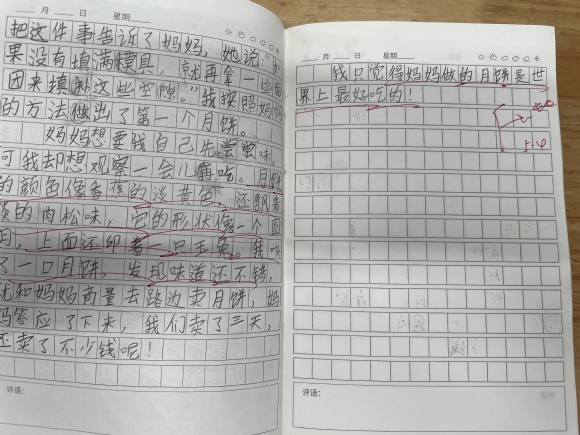 月 日 星期
把这件事告诉了妈妈，她说："如
果没有填满模具，就再拿一些面
团来填补这些空隙。"我按照妈妈
的方法做出了第一个月饼。
妈妈想要我自己先尝尝味，
可我却想观察一会儿再吃。月饼
的颜色像香蕉的淡黄色，还飘着
的肉松味，它的形状像一个圆
月，上面还印着一只玉兔。我咬
了一口月饼，发现味道还不错，
就和妈妈商量去路边卖月饼，妈
妈答应了下来，我们卖了三天，
还卖了不少钱呢！
评语：
月 日 星期
我只觉得妈妈做的月饼是世
界上最好吃的！
5.4
评语：